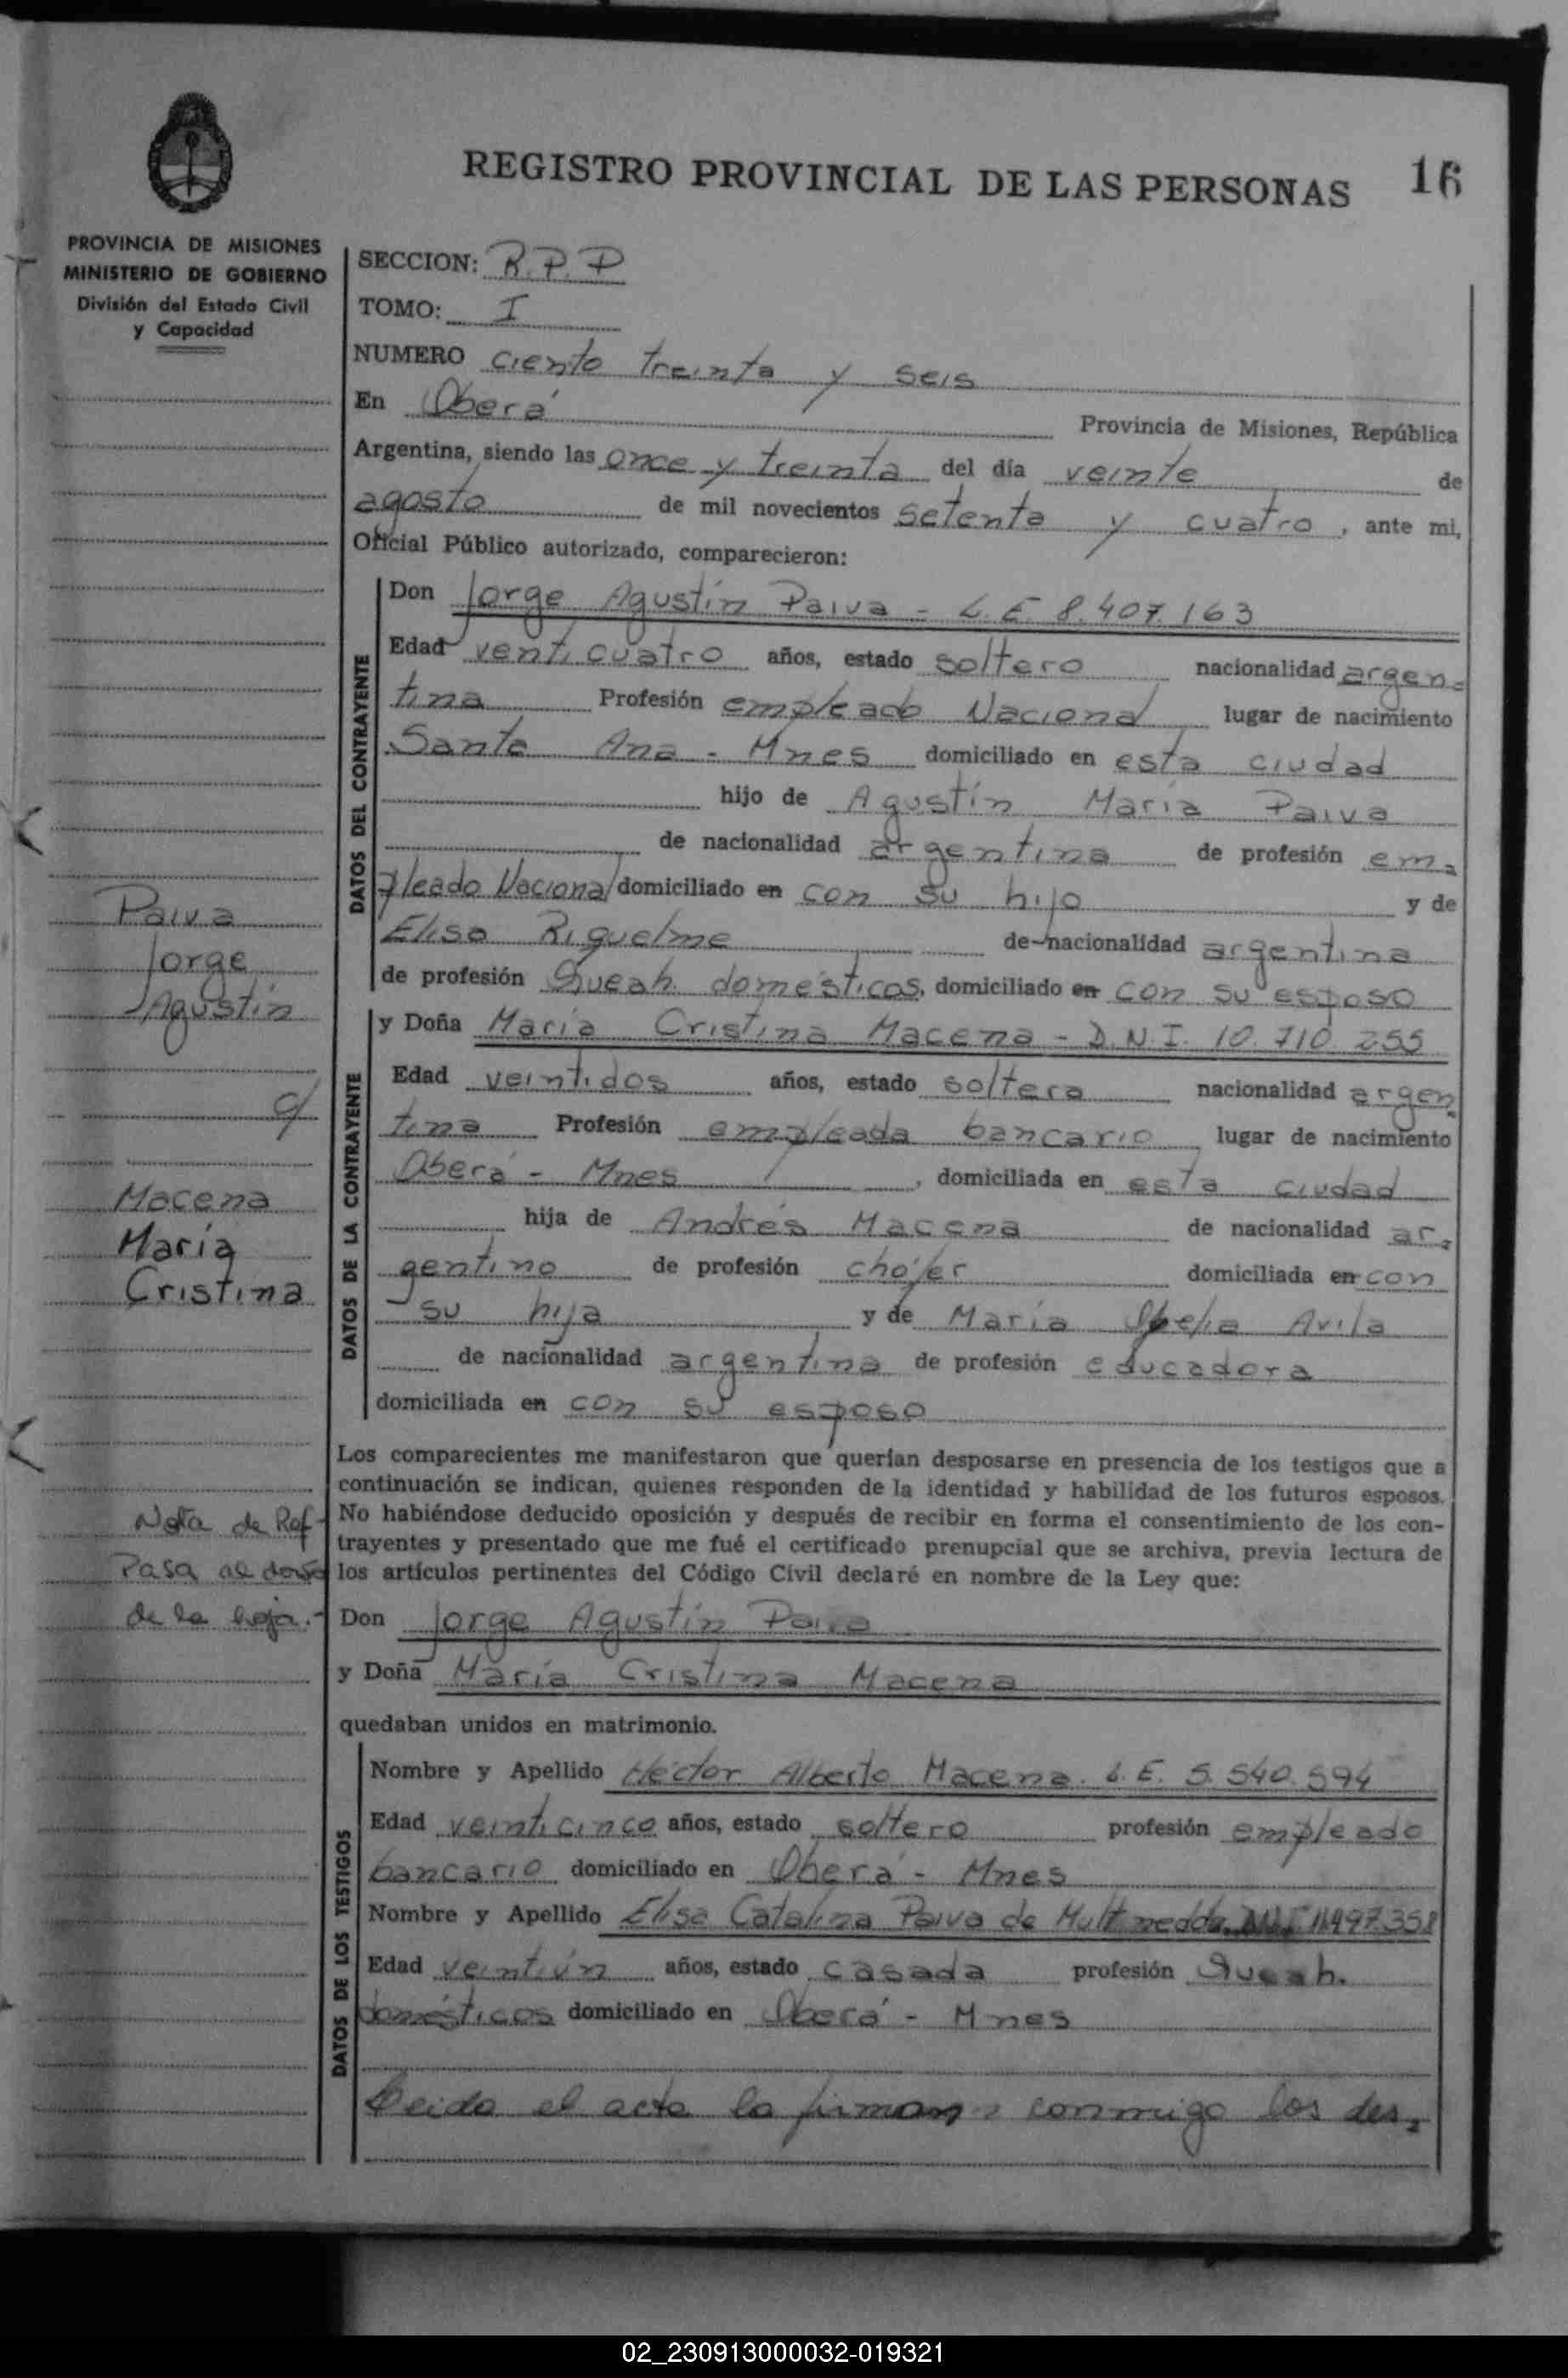 REGISTRO PROVINCIAL DE LAS PERSONAS 16
PROVINCIA DE MISIONES
MINISTERIO DE GOBIERNO
División del Estado Civil
y Capacidad
SECCION: R.P.P
TOMO: I
NUMERO ciento treinta y seis
En Oberá Provincia de Misiones, República
Argentina, siendo las once y treinta del día veinte de
agosto de mil novecientos setenta y cuatro, ante mi,
Oficial Público autorizado, comparecieron:
DATOS DEL CONTRAYENTE
Don Jorge Agustín Paiva - L.E 8.407.163
Edad venticuatro años, estado soltero nacionalidad argen-
tina Profesión empleado Nacional lugar de nacimiento
Santa Ana - Mnes domiciliado en esta ciudad
hijo de Agustín María Paiva
de nacionalidad argentina de profesión em-
pleado Nacional domiciliado en con su hijo y de
Elisa Riquelme de nacionalidad argentina
de profesión Queah. domésticos, domiciliado en con su esposo
Paiva
Jorge
Agustín
c/
Macena
María
Cristina
DATOS DE LA CONTRAYENTE
y Doña María Cristina Macena - D.N.I. 10.710.255
Edad veintidos años, estado soltera nacionalidad argen-
tina Profesión empleada bancario lugar de nacimiento
Oberá - Mnes, domiciliada en esta ciudad
hija de Andrés Macena de nacionalidad ar-
gentino de profesión chófer domiciliada en con
su hija y de María Ofelia Avila
de nacionalidad argentina de profesión educadora
domiciliada en con su esposo
Los comparecientes me manifestaron que querían desposarse en presencia de los testigos que a
continuación se indican, quienes responden de la identidad y habilidad de los futuros esposos.
No habiéndose deducido oposición y después de recibir en forma el consentimiento de los con-
trayentes y presentado que me fué el certificado prenupcial que se archiva, previa lectura de
los artículos pertinentes del Código Civil declaré en nombre de la Ley que:
Nota de Ref-
Pasa al dorso
de la hoja.-
Don Jorge Agustín Paiva
y Doña María Cristina Macena
quedaban unidos en matrimonio.
DATOS DE LOS TESTIGOS
Nombre y Apellido Héctor Alberto Macena. L.E. 5.540.594
Edad veinticinco años, estado soltero profesión empleado
bancario domiciliado en Oberá - Mnes
Nombre y Apellido Elisa Catalina Paiva de 11.497.358
Edad veintiún años, estado casada profesión Queah.
domésticos domiciliado en Oberá - Mnes
Leida el acta la firman conmigo los des-
02_230913000032-019321